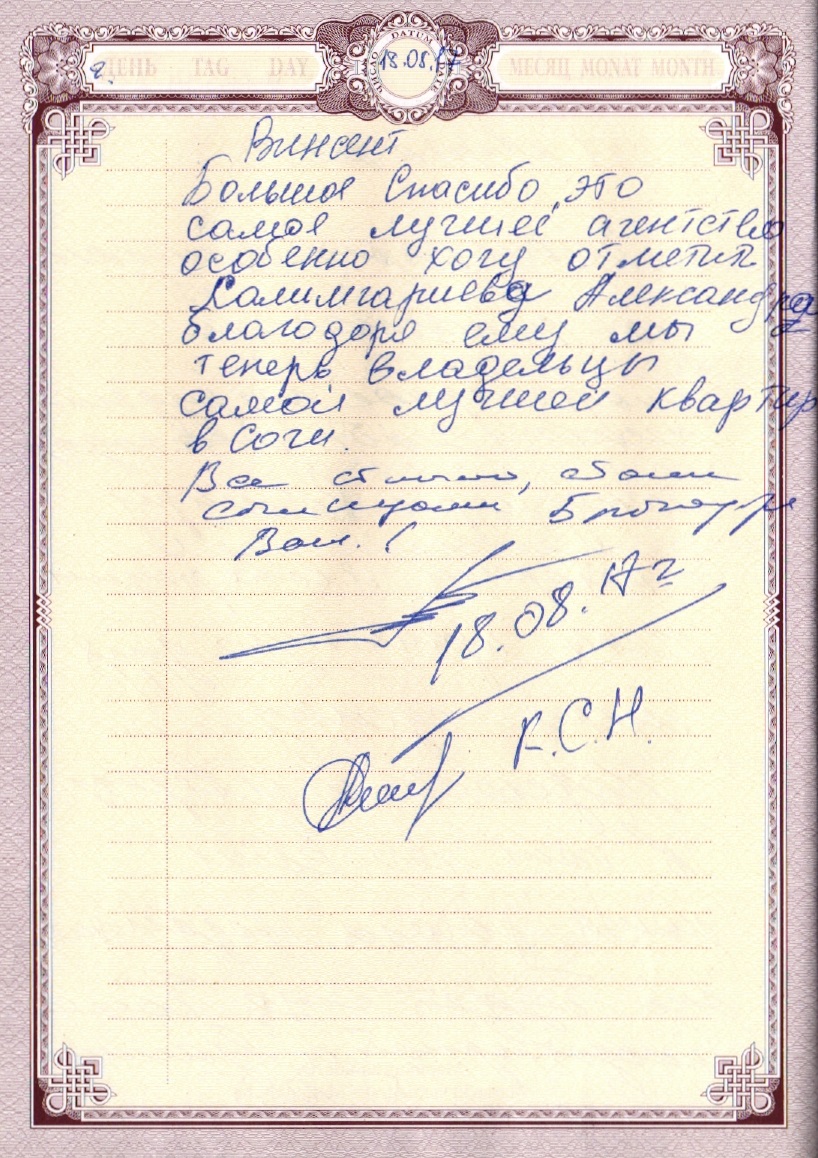 ДЕНЬ TAG DAY DATUM 18.08.17 МЕСЯЦ MONAT MONTH
Винсент
Большое Спасибо, это
самое лучшее агентство
особенно хочу отметит
Калимгариева Александра
благодоря ему мы
теперь владельцы
самой лучшей квартир
в Сочи.
Все отлично, стали
сочинцами Благодаря
Вам!
18.08.17г
К.С.Н.